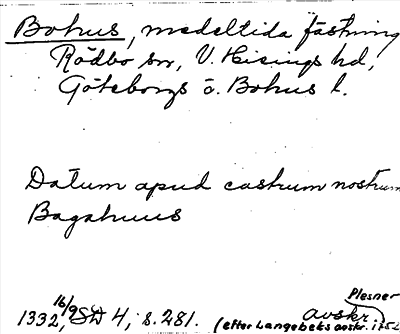 Bohus, medeltida fästning
Rödbo sn, V. Hisings hd,
Göteborgs o. Bohus l.
Datum apud castrum nostrum
Bagahuus
Plesner
1332 16/9, SD 4, s. 281. avskr.
(efter Langebeks avskr.